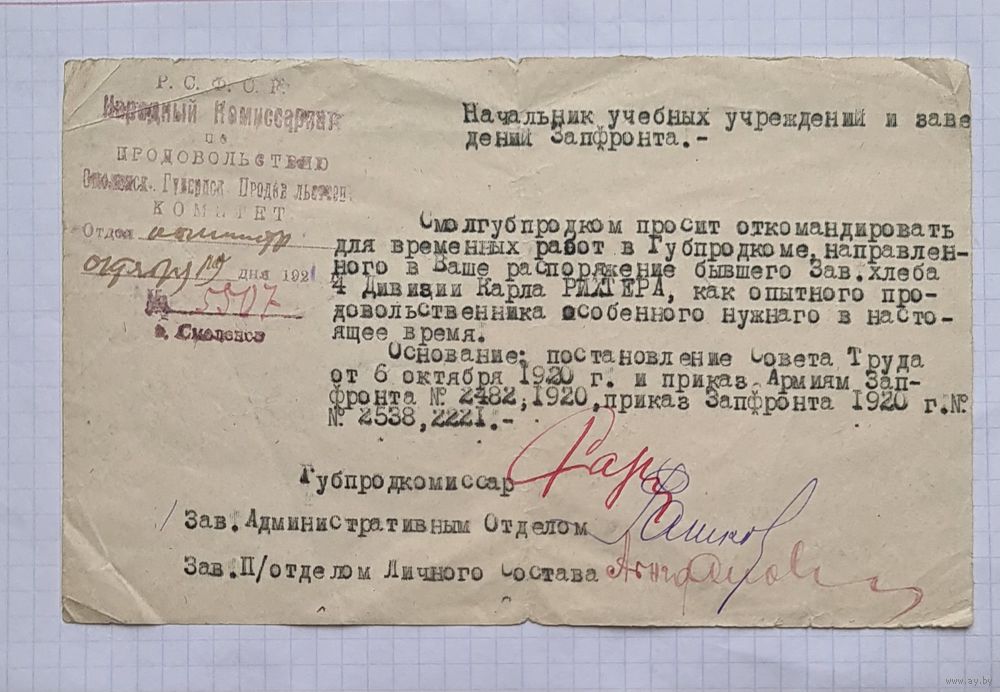 Р. С. Ф. С. Р.
Народный Комиссариат
по
ПРОДОВОЛЬСТВІЮ
Смоленск. Губернск. Продовольствен.
КОМИТЕТ
Отдел админстр
октября 19 дня 1921
№ 5507
г. Смоленск
Начальник учебных учреждений и заве
дений Запфронта.-
Смолгубпродком просит откомандировать
для временных работ в Губпродкоме, направлен-
ного в Ваше распоряжение бывшего Зав.хлеба
4 Дивизии Карла РИХТЕРА, как опытного про-
довольственника особенного нужнаго в насто-
ящее время.
Основание: постановление Совета Труда
от 6 октября 1920 г. и приказ Армиям Зап-
фронта № 2482,1920,приказ Запфронта 1920 г.№
№ 2538,2221.-
Губпродкомиссар
Зав.Административным Отделом
Зав.П/отделом Личного Состава
www.ay.by